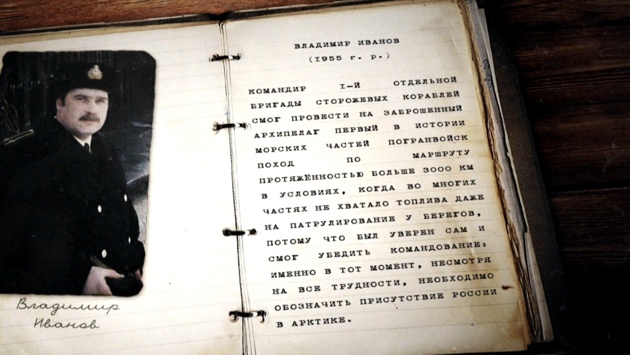 ВЛАДИМИР ИВАНОВ
(1955 г. р.)
КОМАНДИР 1-Й ОТДЕЛЬНОЙ
БРИГАДЫ СТОРОЖЕВЫХ КОРАБЛЕЙ
СМОГ ПРОВЕСТИ НА ЗАБРОШЕННЫЙ
АРХИПЕЛАГ ПЕРВЫЙ В ИСТОРИИ
МОРСКИХ ЧАСТЕЙ ПОГРАНВОЙСК
ПОХОД ПО МАРШРУТУ
ПРОТЯЖЁННОСТЬЮ БОЛЬШЕ 3000 КМ
В УСЛОВИЯХ, КОГДА ВО МНОГИХ
ЧАСТЯХ НЕ ХВАТАЛО ТОПЛИВА ДАЖЕ
НА ПАТРУЛИРОВАНИЕ У БЕРЕГОВ,
ПОТОМУ ЧТО БЫЛ УВЕРЕН САМ И
СМОГ УБЕДИТЬ КОМАНДОВАНИЕ:
ИМЕННО В ТОТ МОМЕНТ, НЕСМОТРЯ
НА ВСЕ ТРУДНОСТИ, НЕОБХОДИМО
ОБОЗНАЧИТЬ ПРИСУТСТВИЕ РОССИИ
В АРКТИКЕ.
Владимир
Иванов